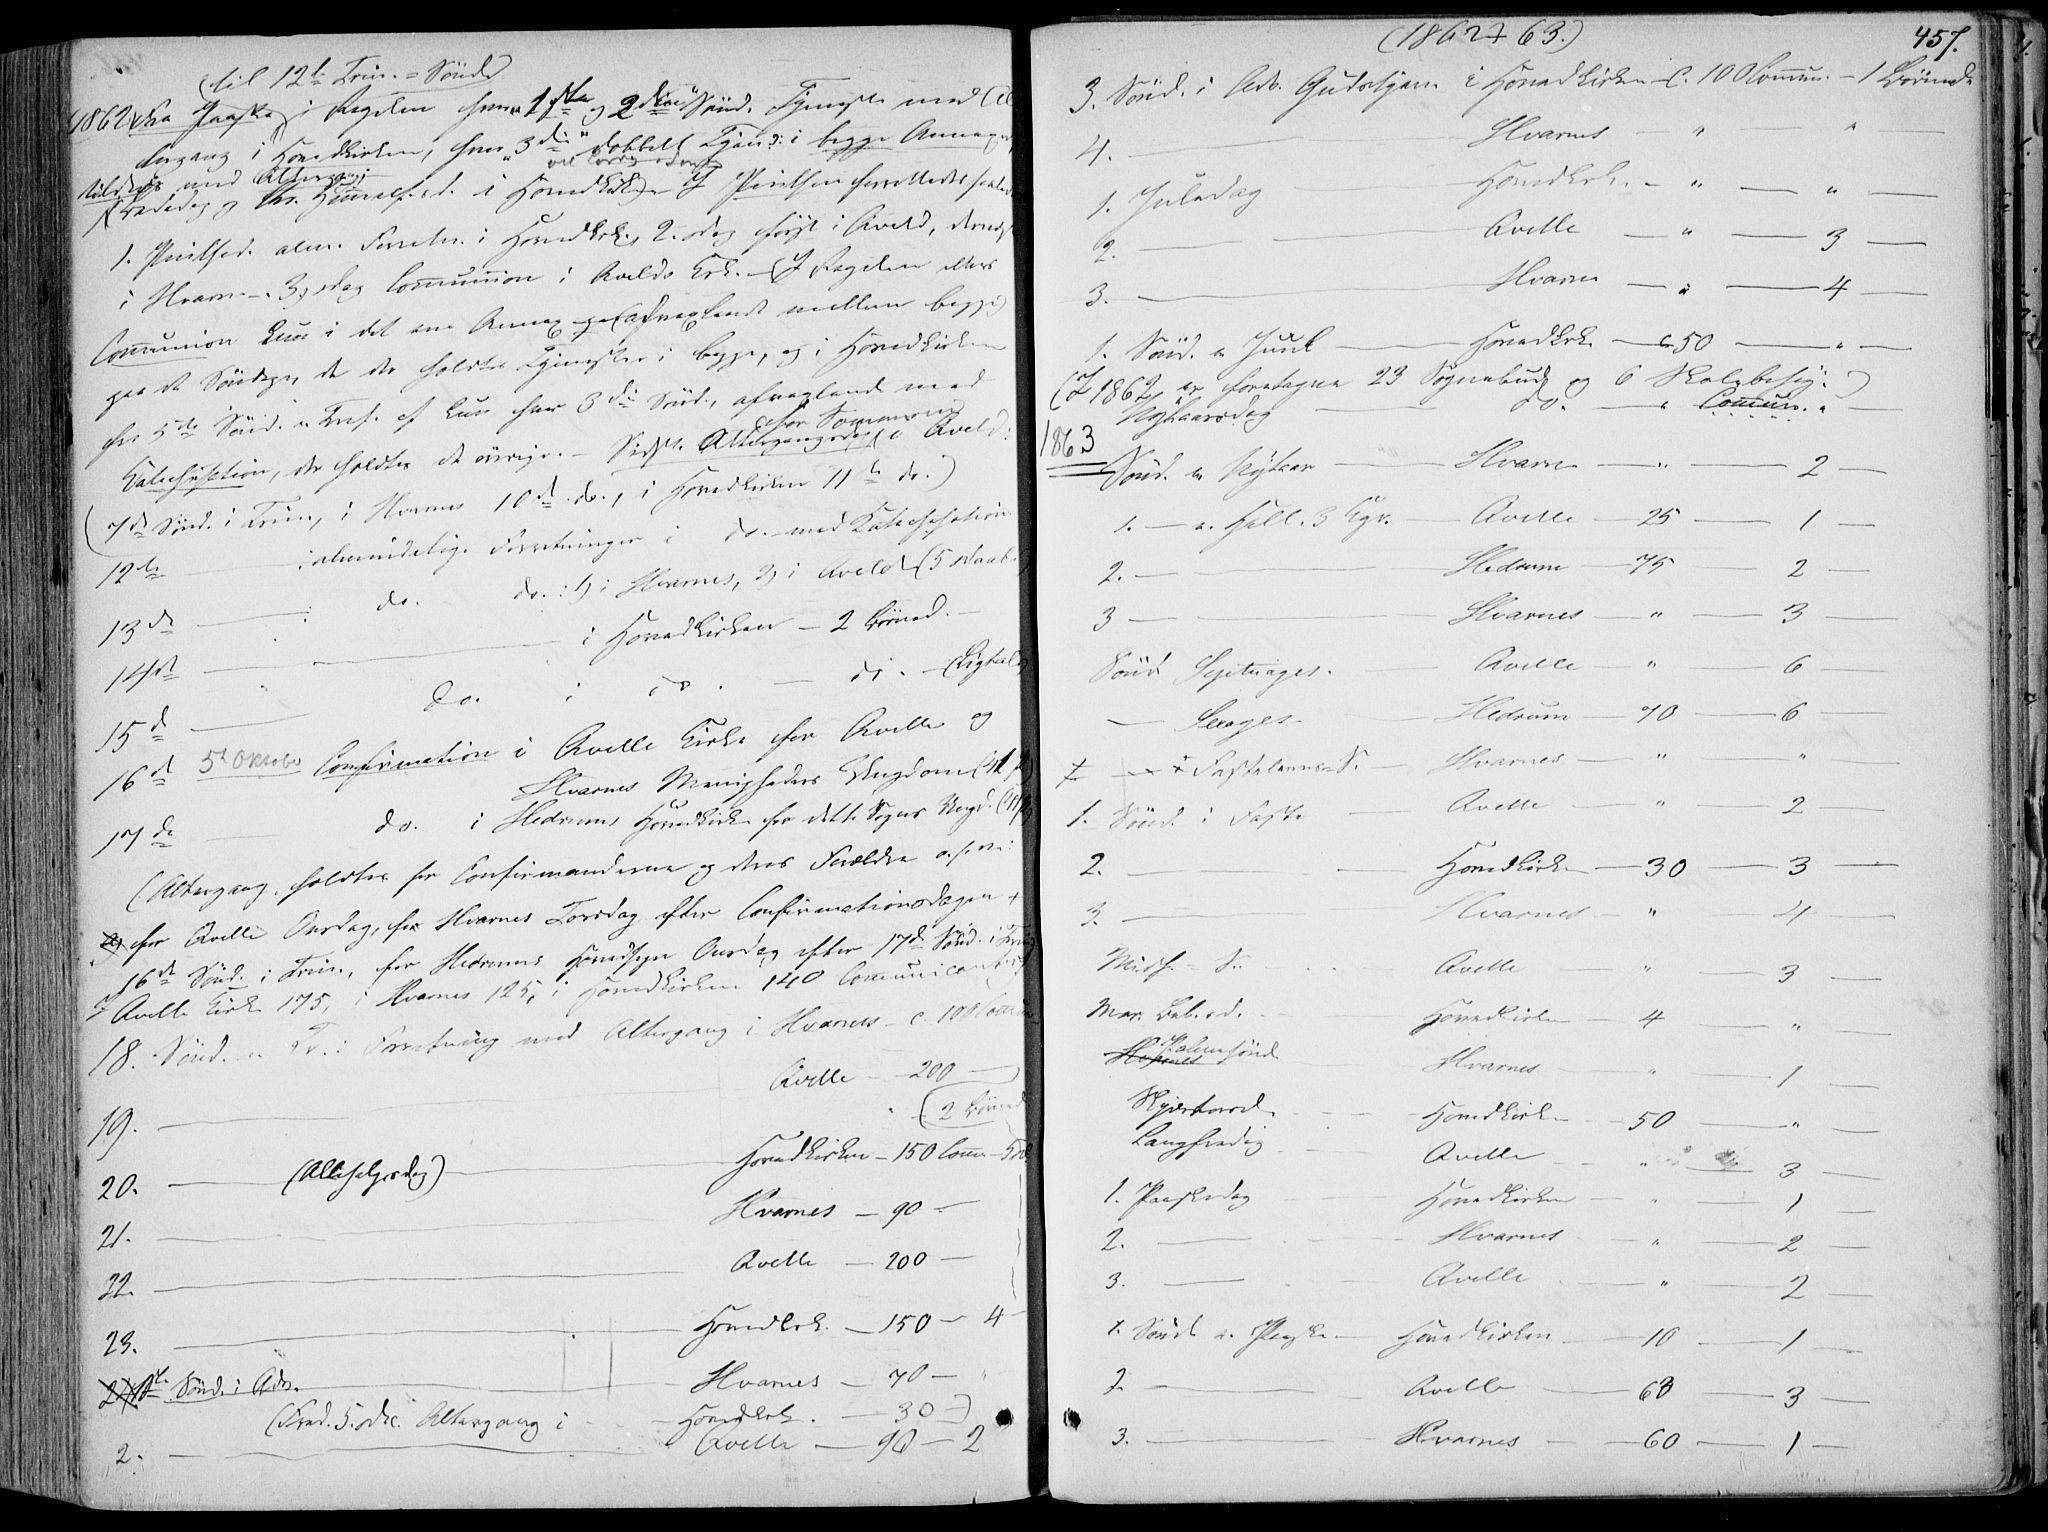 (til 12te Trin.=Sönd.)
1862. Fra Paaske i Regelen hver "1ste og 2den" Sönd. Tjeneste med Al-
tergang i Hovedkirken, hver "3die" dobbelt Tjen. i begge Annexer
med Altergang
i Hovedkirk. I Pintsen forrettedes
1. Pintsed. alm. Forretn. i Hovedkrk., 2. Dag först i Aveld, dernæst
i Hvarn. 3. Dag Communion i Avelds Krk. (I Regelen ellers
Communion kun i det ene Annex afvexlende mellem begge
paa de Söndage, da der holdtes Tjenester i begge, og i Hovedkirken
fra 5te Sönd. e. Tref. kun hver 3die Sönd., afvexlende med
for Sommeren
Katechisation, der holdtes de övrige. - Sidste Altergangsdag i Aveld:
(7de Sönd. i Trin., i Hvarnes 10de do., i Hovedkirken 11te do.)
12te : almindelig Forretninger i do. med Katechisation
13de : do. do. : 1) i Hvarnes, 2) i Aveld (5 Daab.)
14de i Hovedkirken - 2 Börned.
15de do. i do. - do. - (Ligtale)
16de 5te Oktober Confirmation i Avelle Kirke for Avelle og
Hvarnes Menigheders Ungdom (41
17de do. i Hedrums Hovedkirk. for dette Sogns Ungd.
(Altergang holdtes for Confirmanderne og deres Forældre
for Avelle Onsdag, for Hvarnes Torsdag efter Confirmationsdagen
16de Sönd. i Trin., for Hedrums Hovedsogn Onsdag efter 17de Sönd. i Trin.
I Avelle Kirke 175, i Hvarnes 125, i Hovedkirken 140 Communicanter)
18. Sönd. e. Tr.: Forretning med Altergang i Hvarnes - c. 100 Comm.
19. Avelle - 200
(2 Börned.
20. (Allehelgesdag) Hovedkirken - 150 Comm. - 5
21. Hvarnes - 90 -
22. Avelle - 200 -
23. Hovedkrk. - 150 - 4
1ste Sönd. i Adv. Hvarnes - 70 - "
(Fred. 5. Dec. Altergang i Hovedkrk. - 30 -)
2. Avelle - 90 - 2
(1862 + 63.) 457.
3. Sönd. i Adv. Gudstjen. i Hovedkirken c. 100 Commun. - 1 Börned.
4. Hvarnes " "
1. Juledag Hovedkrk. - " - "
2. Avelle - " - 3
3. Hvarnes - " - 4
1. Sönd. e. Juul Hovedkrk. - c. 50 - "
(I 1862 er foretagne 23 Sognebud og 6 Skolebesög.)
Nytaarsdag do. - " Commun. "
1863
Sönd. e. Nytaar Hvarn - " - 2
1. - e. Hell. 3 Kgr. - Avelle - 25 - 1
2. Hedrum - 75 - 2
3 Hvarnes - " - 3
Sönd. Septuages. Avelle - " - 6
- Sexages. Hedrum - 70 - 6
Fastelavns S. Hvarnes - " "
1. Sönd. i Faste Avelle " - 2
2. Hovedkirk. - 30 - 3
3. Hvarnes - " - 4
Midf. - S. Avelle " 3
Mar. Beb. D. Hovedkirken - 4 - "
Palmesönd. Hvarnes - " - 1
Skjærtorsd. Hovedkirk. - 50 - "
Langfredag Avelle - " - 3
1. Paaskedag Hovedkirken - " - 1
2. Hvarnes - " - 2
3. Avelle - " - 2
1. Sönd. e. Paaske Hovedkirken - 10 - 1
2. Avelle - 63 - 3
3. Hvarnes - 60 - 1